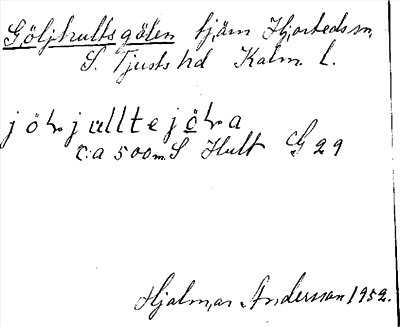 Göljhultsgölen tjärn Hjorteds sn.
S. Tjusts hd Kalm. l.
c:a 500 m S Hult G 29
Hjalmar Andersson 1952.